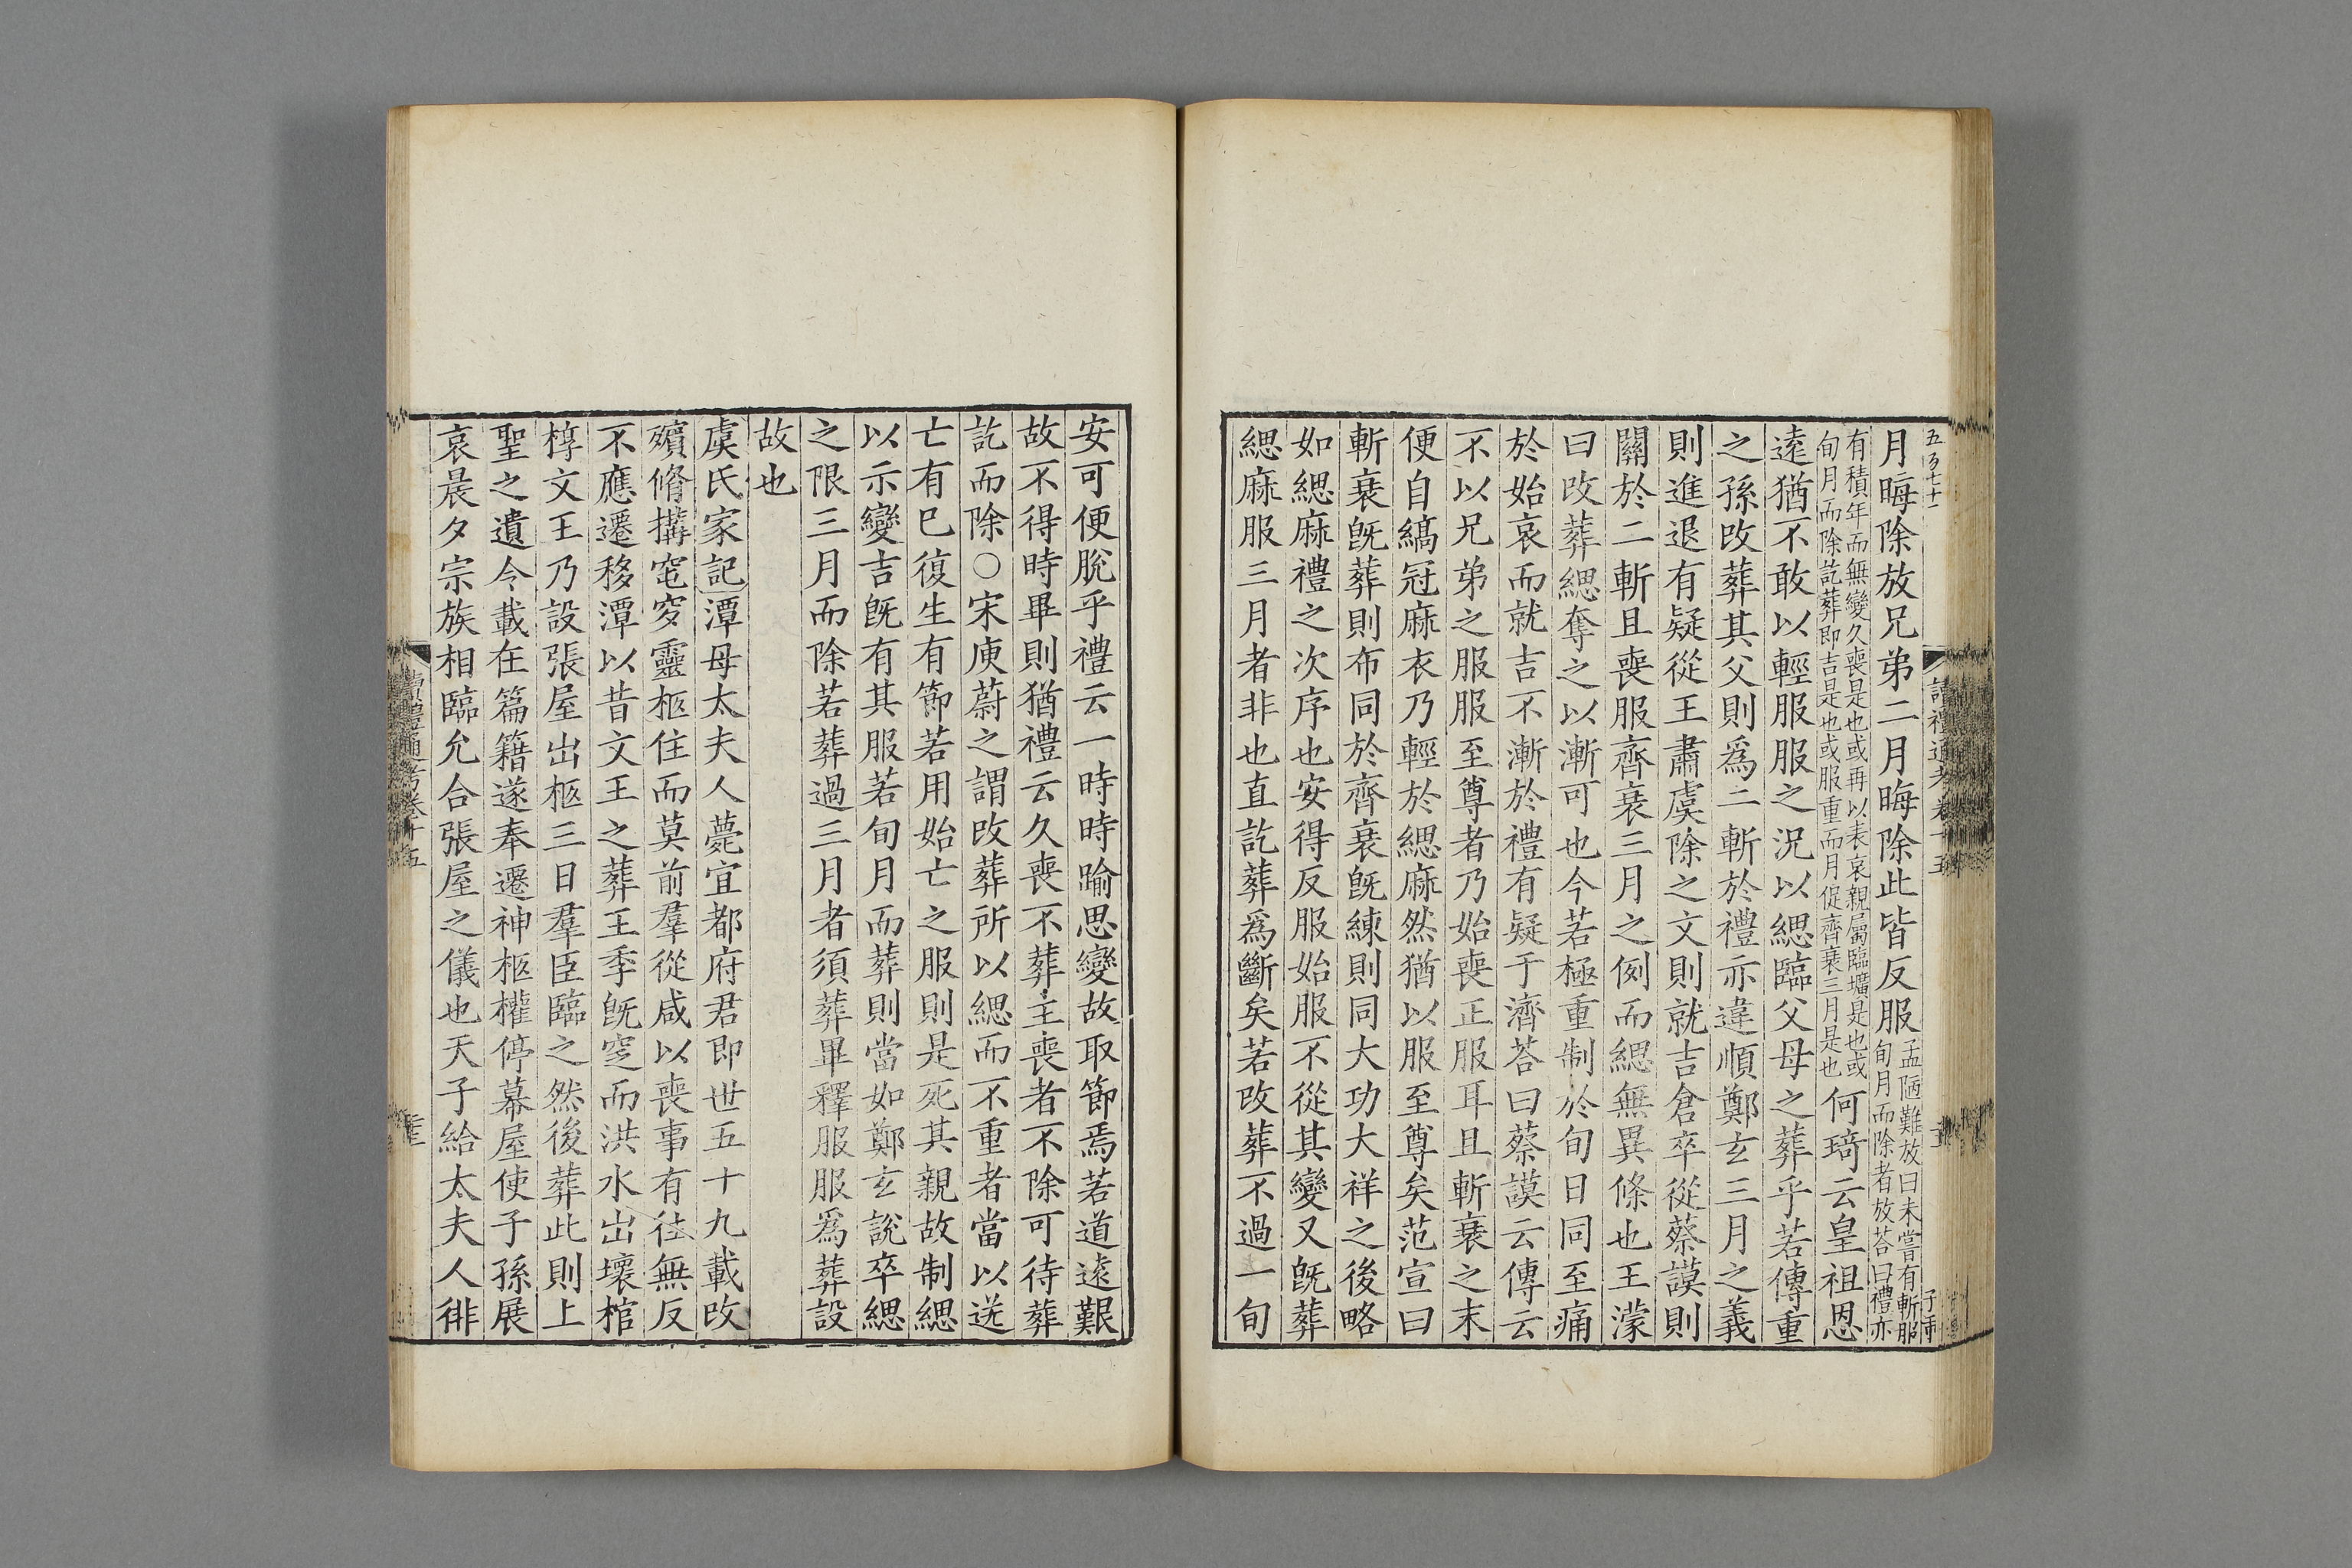 月晦除放兄弟二月晦除此皆反服孟陋難放曰未嘗有斬服旬月而除者放荅曰禮亦
有積年而無變久喪是也或再以表哀親屬臨壙是也或旬月而除訖葬即吉是也或服重而月促齊衰三月是也何琦云皇祖恩
遠猶不敢以輕服服之況以緦臨父母之葬乎若傳重
之孫改葬其父則爲二斬於禮亦違順鄭玄三月之義
則進退有疑從王肅虞除之文則就吉倉卒從蔡謨則
關於二斬且喪服齊衰三月之例而緦無異條也王濛
曰改葬緦奪之以漸可也今若極重制於旬日同至痛
於始哀而就吉不漸於禮有疑于濟荅曰蔡謨云傳云
不以兄弟之服服至尊者乃始喪正服耳且斬衰之末
便自縞冠麻衣乃輕於緦麻然猶以服至尊矣范宣曰
斬衰旣葬則布同於齊衰旣練則同大功大祥之後略
如緦麻禮之次序也安得反服始服不從其變又旣葬
緦麻服三月者非也直訖葬爲斷矣若改葬不過一旬
安可便脫乎禮云一時時踰思變故取節焉若道遠艱
故不得時畢則猶禮云久喪不葬主喪者不除可待葬
訖而除○宋庾蔚之謂改葬所以緦而不重者當以送
亡有已復生有節若用始亡之服則是死其親故制緦
以示變吉旣有其服若旬月而葬則當如鄭玄說卒緦
之限三月而除若葬過三月者須葬畢釋服服爲葬設
故也
虞氏家記潭母太夫人薨宜都府君即世五十九載改
殯脩搆窀穸靈柩住而莫前羣從咸以喪事有往無反
不應遷移潭以昔文王之葬王季旣窆而洪水出壞棺
椁文王乃設張屋出柩三日羣臣臨之然後葬此則上
聖之遺令載在篇籍遂奉遷神柩權停幕屋使子孫展
哀晨夕宗族相臨允合張屋之儀也天子給太夫人徘
讀禮通考卷十五